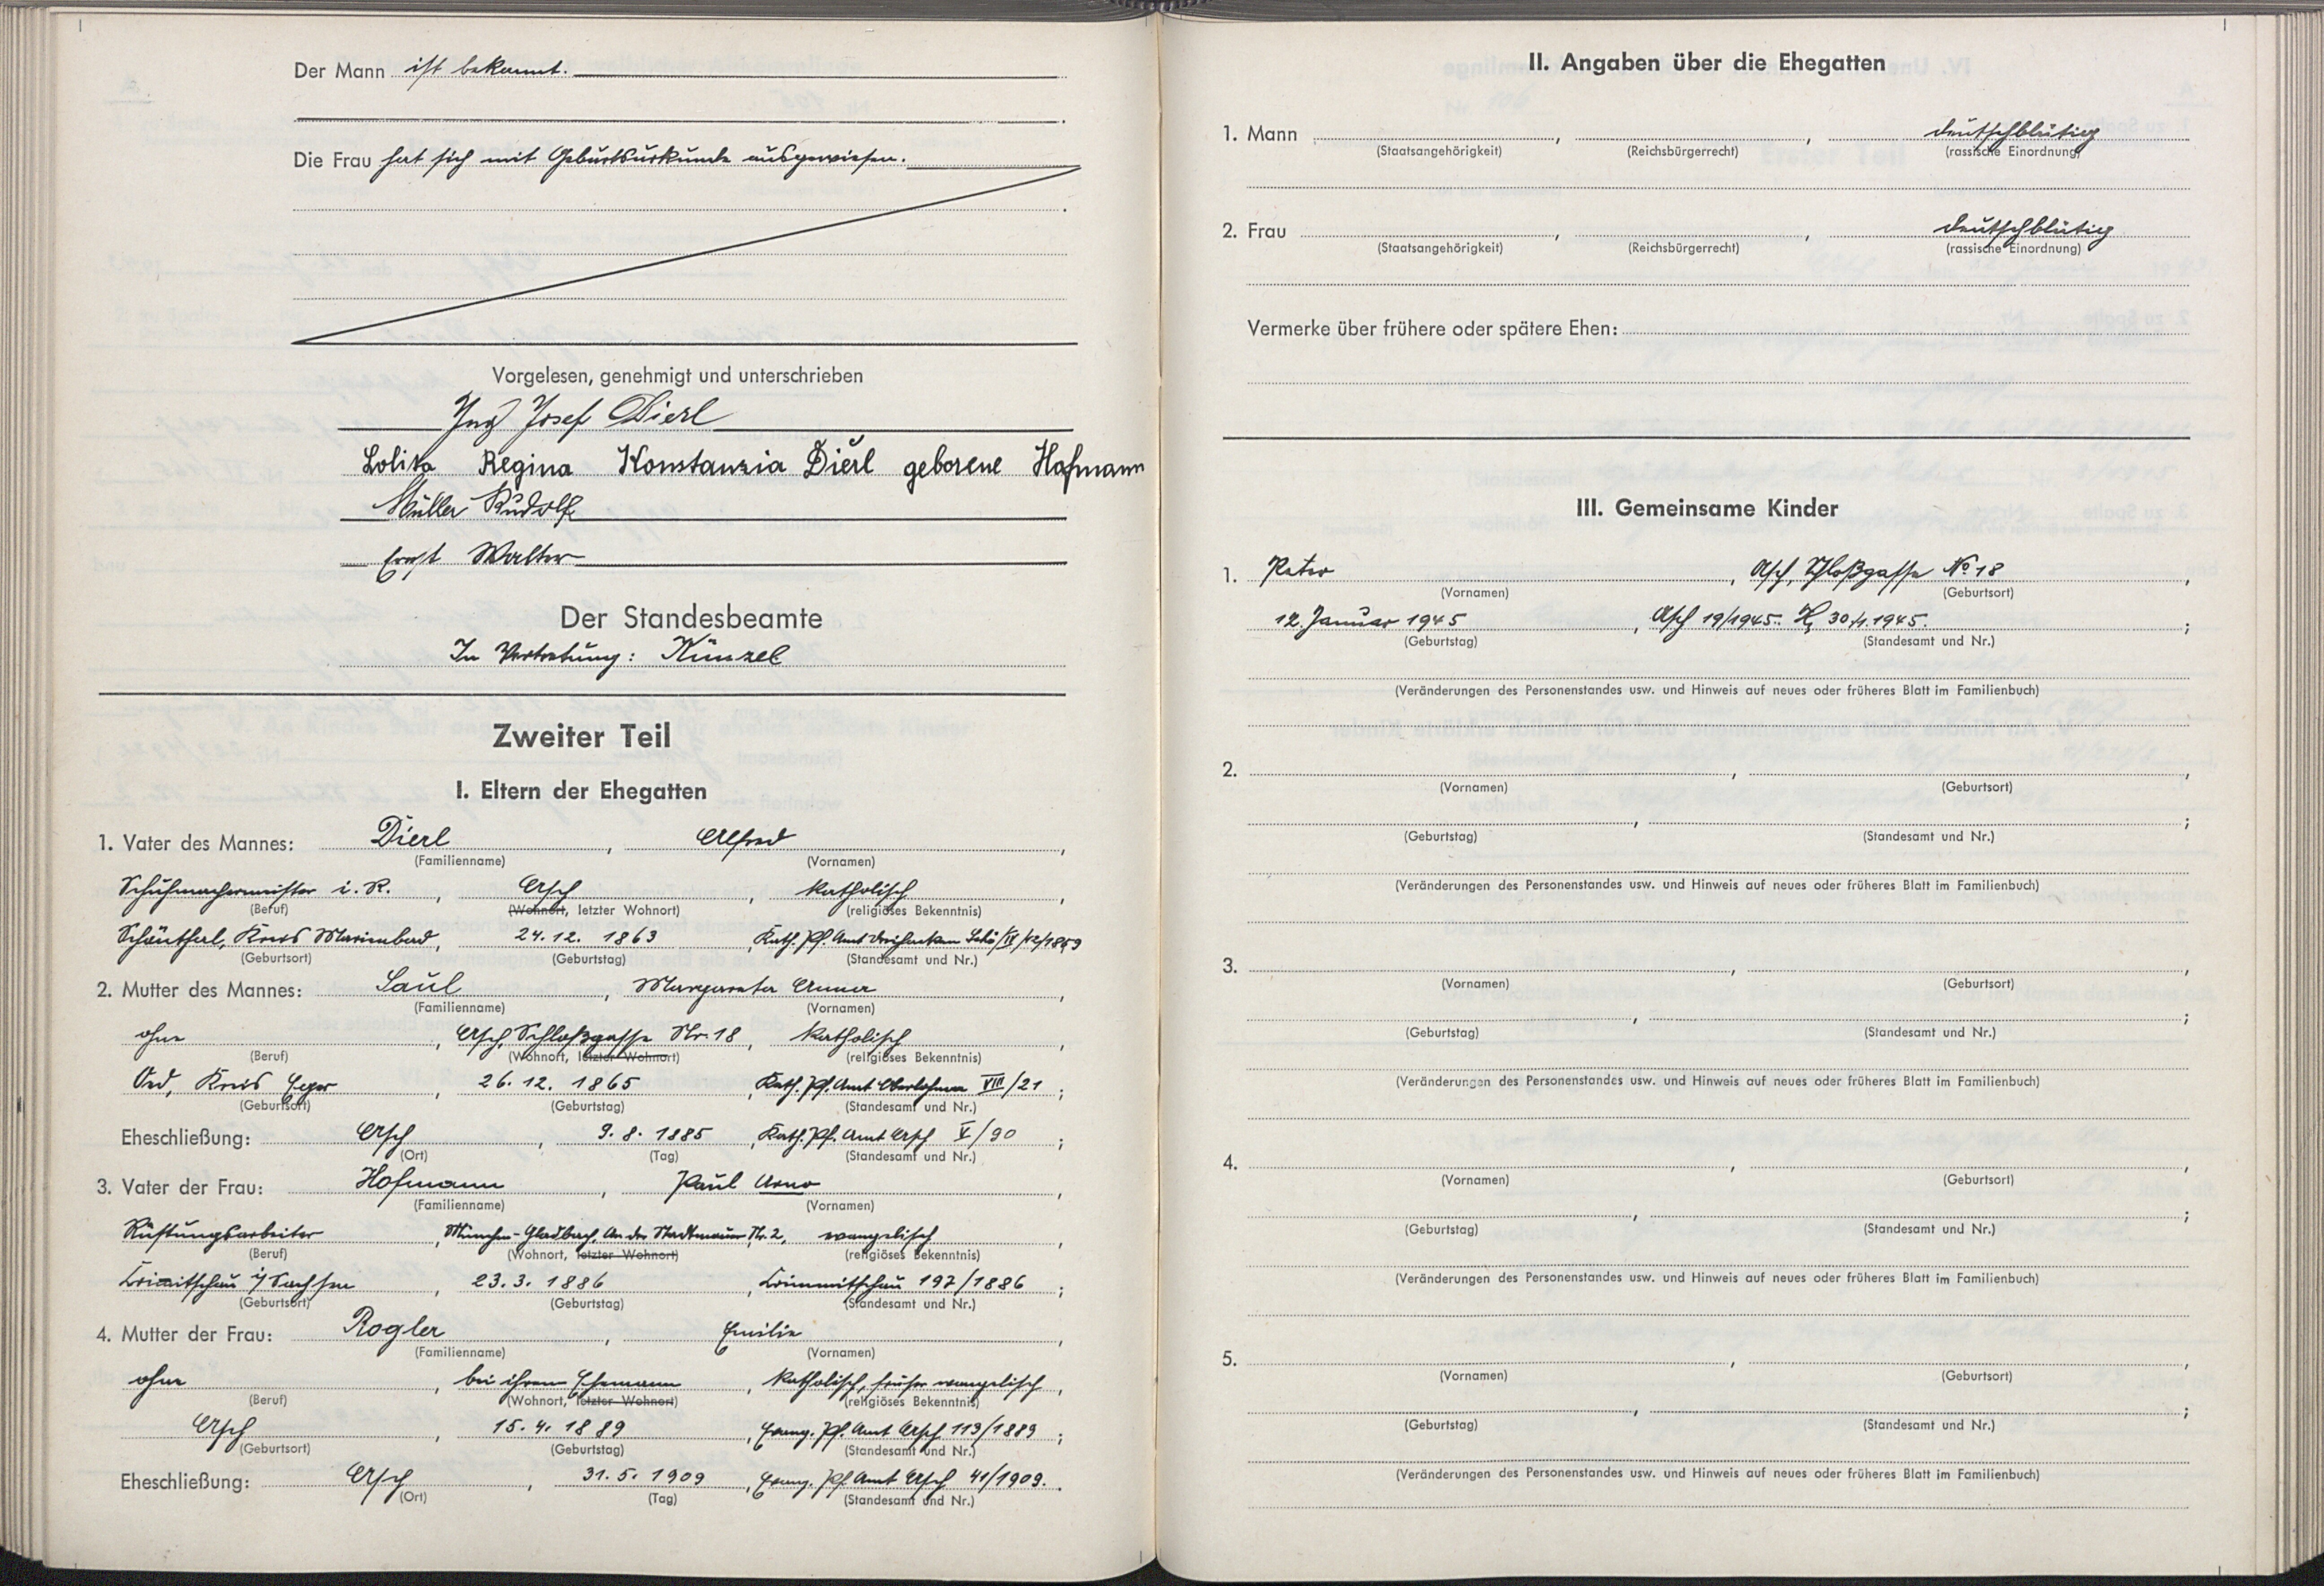 Der Mann ist bekannt.
Die Frau hat sich mit Geburtsurkunde ausgewiesen.
Vorgelesen, genehmigt und unterschrieben
Ing Josef Dierl
Lolita Regina Konstanzia Dierl geborene Hofmann
Müller Rudolf
Ernst Walter
Der Standesbeamte
In Vertretung: Künzel
Zweiter Teil
I. Eltern der Ehegatten
1. Vater des Mannes: Dierl, Alfred,
(Familienname) (Vornamen)
Schuhmachermeister i. R., Asch, katholisch,
(Beruf) (Wohnort, letzter Wohnort) (religiöses Bekenntnis)
Schönthal, Kreis Marienbad, 24.12. 1863, Kath. Pf. Amt
(Geburtsort) (Geburtstag) (Standesamt und Nr.)
2. Mutter des Mannes: Saul, Margareta Anna,
(Familienname) (Vornamen)
ohne, Asch, Schloßgasse Nr. 18, katholisch,
(Beruf) (Wohnort, letzter Wohnort) (religiöses Bekenntnis)
Oed, Kreis Eger, 26. 12. 1865, Kath. Pf. Amt Oberlohma VIII/21;
(Geburtsort) (Geburtstag) (Standesamt und Nr.)
Eheschließung: Asch, 9. 8. 1885, Kath. Pf. Amt Asch V/90;
(Ort) (Tag) (Standesamt und Nr.)
3. Vater der Frau: Hofmann, Paul Arno,
(Familienname) (Vornamen)
Rüstungsarbeiter, München-Gladbach, An der Stadtmauer Nr. 2, evangelisch,
(Beruf) (Wohnort, letzter Wohnort) (religiöses Bekenntnis)
Crimitschau i/ Sachsen, 23. 3. 1886, Crimmitschau 197/1886;
(Geburtsort) (Geburtstag) (Standesamt und Nr.)
4. Mutter der Frau: Rogler, Emilie,
(Familienname) (Vornamen)
ohne, bei ihrem Ehemann, katholisch, früher evangelisch,
(Beruf) (Wohnort, letzter Wohnort) (religiöses Bekenntnis)
Asch, 15. 4. 1889, Evang. Pf. Amt Asch 113/1889;
(Geburtsort) (Geburtstag) (Standesamt und Nr.)
Eheschließung: Asch, 31. 5. 1909, Evang. Pf. Amt Asch 41/1909.
(Ort) (Tag) (Standesamt und Nr.)
II. Angaben über die Ehegatten
1. Mann , , deutschblütig
(Staatsangehörigkeit) (Reichsbürgerrecht) (rassische Einordnung)
2. Frau , , deutschblütig
(Staatsangehörigkeit) (Reichsbürgerrecht) (rassische Einordnung)
Vermerke über frühere oder spätere Ehen:
III. Gemeinsame Kinder
1. Peter, Asch, Schloßgasse No 18,
(Vornamen) (Geburtsort)
12. Januar 1945, Asch 19/1945. 30./1.1945.;
(Geburtstag) (Standesamt und Nr.)
(Veränderungen des Personenstandes usw. und Hinweis auf neues oder früheres Blatt im Familienbuch)
2. , ,
(Vornamen) (Geburtsort)
, ;
(Geburtstag) (Standesamt und Nr.)
(Veränderungen des Personenstandes usw. und Hinweis auf neues oder früheres Blatt im Familienbuch)
3. , ,
(Vornamen) (Geburtsort)
, ;
(Geburtstag) (Standesamt und Nr.)
(Veränderungen des Personenstandes usw. und Hinweis auf neues oder früheres Blatt im Familienbuch)
4. , ,
(Vornamen) (Geburtsort)
, ;
(Geburtstag) (Standesamt und Nr.)
(Veränderungen des Personenstandes usw. und Hinweis auf neues oder früheres Blatt im Familienbuch)
5. , ,
(Vornamen) (Geburtsort)
, ;
(Geburtstag) (Standesamt und Nr.)
(Veränderungen des Personenstandes usw. und Hinweis auf neues oder früheres Blatt im Familienbuch)